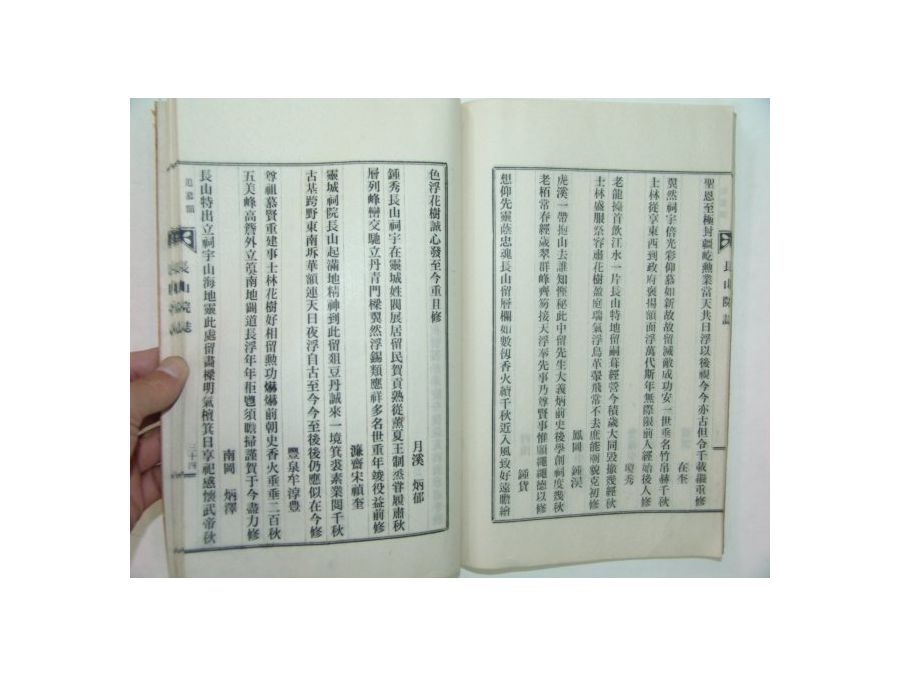 聖恩至極封疆屹勲業當天共日浮以後視今今亦古但令千載繼重修
在奎
翼然祠宇倍光彩仰慕如新故故留滅敵成功安一世垂名竹帛赫千秋
士林從享東西到政府褒揚額面浮萬代斯年無際限前人經始後人修
瓊秀
老龍擡首飲江水一片長山特地留嗣葺經營今積歲大同毀撤幾經秋
士林盛服祭容肅花樹盈庭瑞氣浮鳥革翬飛常不去庶能朝貌克初修
鳳岡 鍾洖
虎溪一帶抱山去誰知慳秘此中留先生大義炳前史後學創祠度幾秋
老栢常春經歲翠群峰齊笏接天浮奉先事乃尊賢事惟願繩繩德以修
鍾貨
想仰先靈蔭忠魂長山留層欄如數仭香火續千秋近入風致好遠瞻繪
長山院誌
色浮花樹誠心發至今重且修
月溪 炳郁
鍾秀長山祠宇在靈城姓閥展居留民賀貢熟從薰夏王制烝甞履肅秋
層列峰巒交馳立丹靑門樑翼然浮錫類應祥多名世重年竣役益前修
濂齋宋禎奎
靈城祠院長山起滿地精神到此留俎豆丹誠來一境箕裘素業閱千秋
古基跨野東南坼華額連天日夜浮自古至今今至後後仍應似在今修
豐泉牟淳豊
尊祖慕賢重建事士林花樹好相留勲功爀爀前朝史香火重重二百秋
五美峰高簷外立
南地闢道長浮年年
須瞻掃謹賀于今盡力修
南岡 炳澤
長山特出立祠宇山海地靈此處留畵樑明氣檀箕日享祀感懷武帝秋
追慕韻
長山院誌
三十四